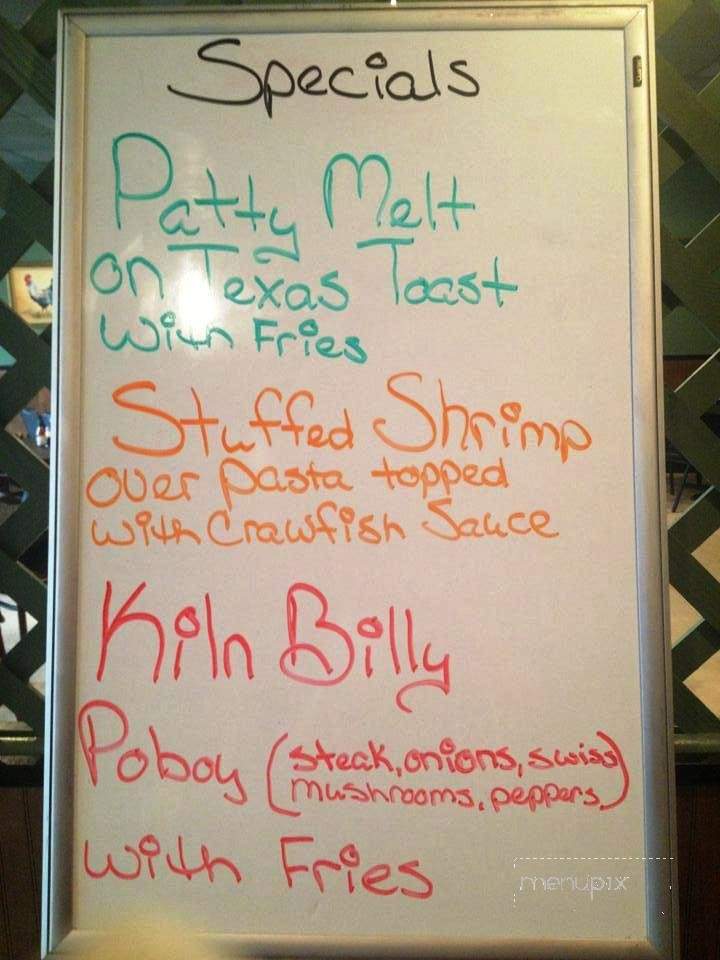 Specials
Patty Melt
on Texas Toast
with Fries
Stuffed Shrimp
over pasta topped
with Crawfish Sauce
Kiln Billy
Poboy (steak, onions, swiss
mushrooms, peppers)
with Fries
menupix